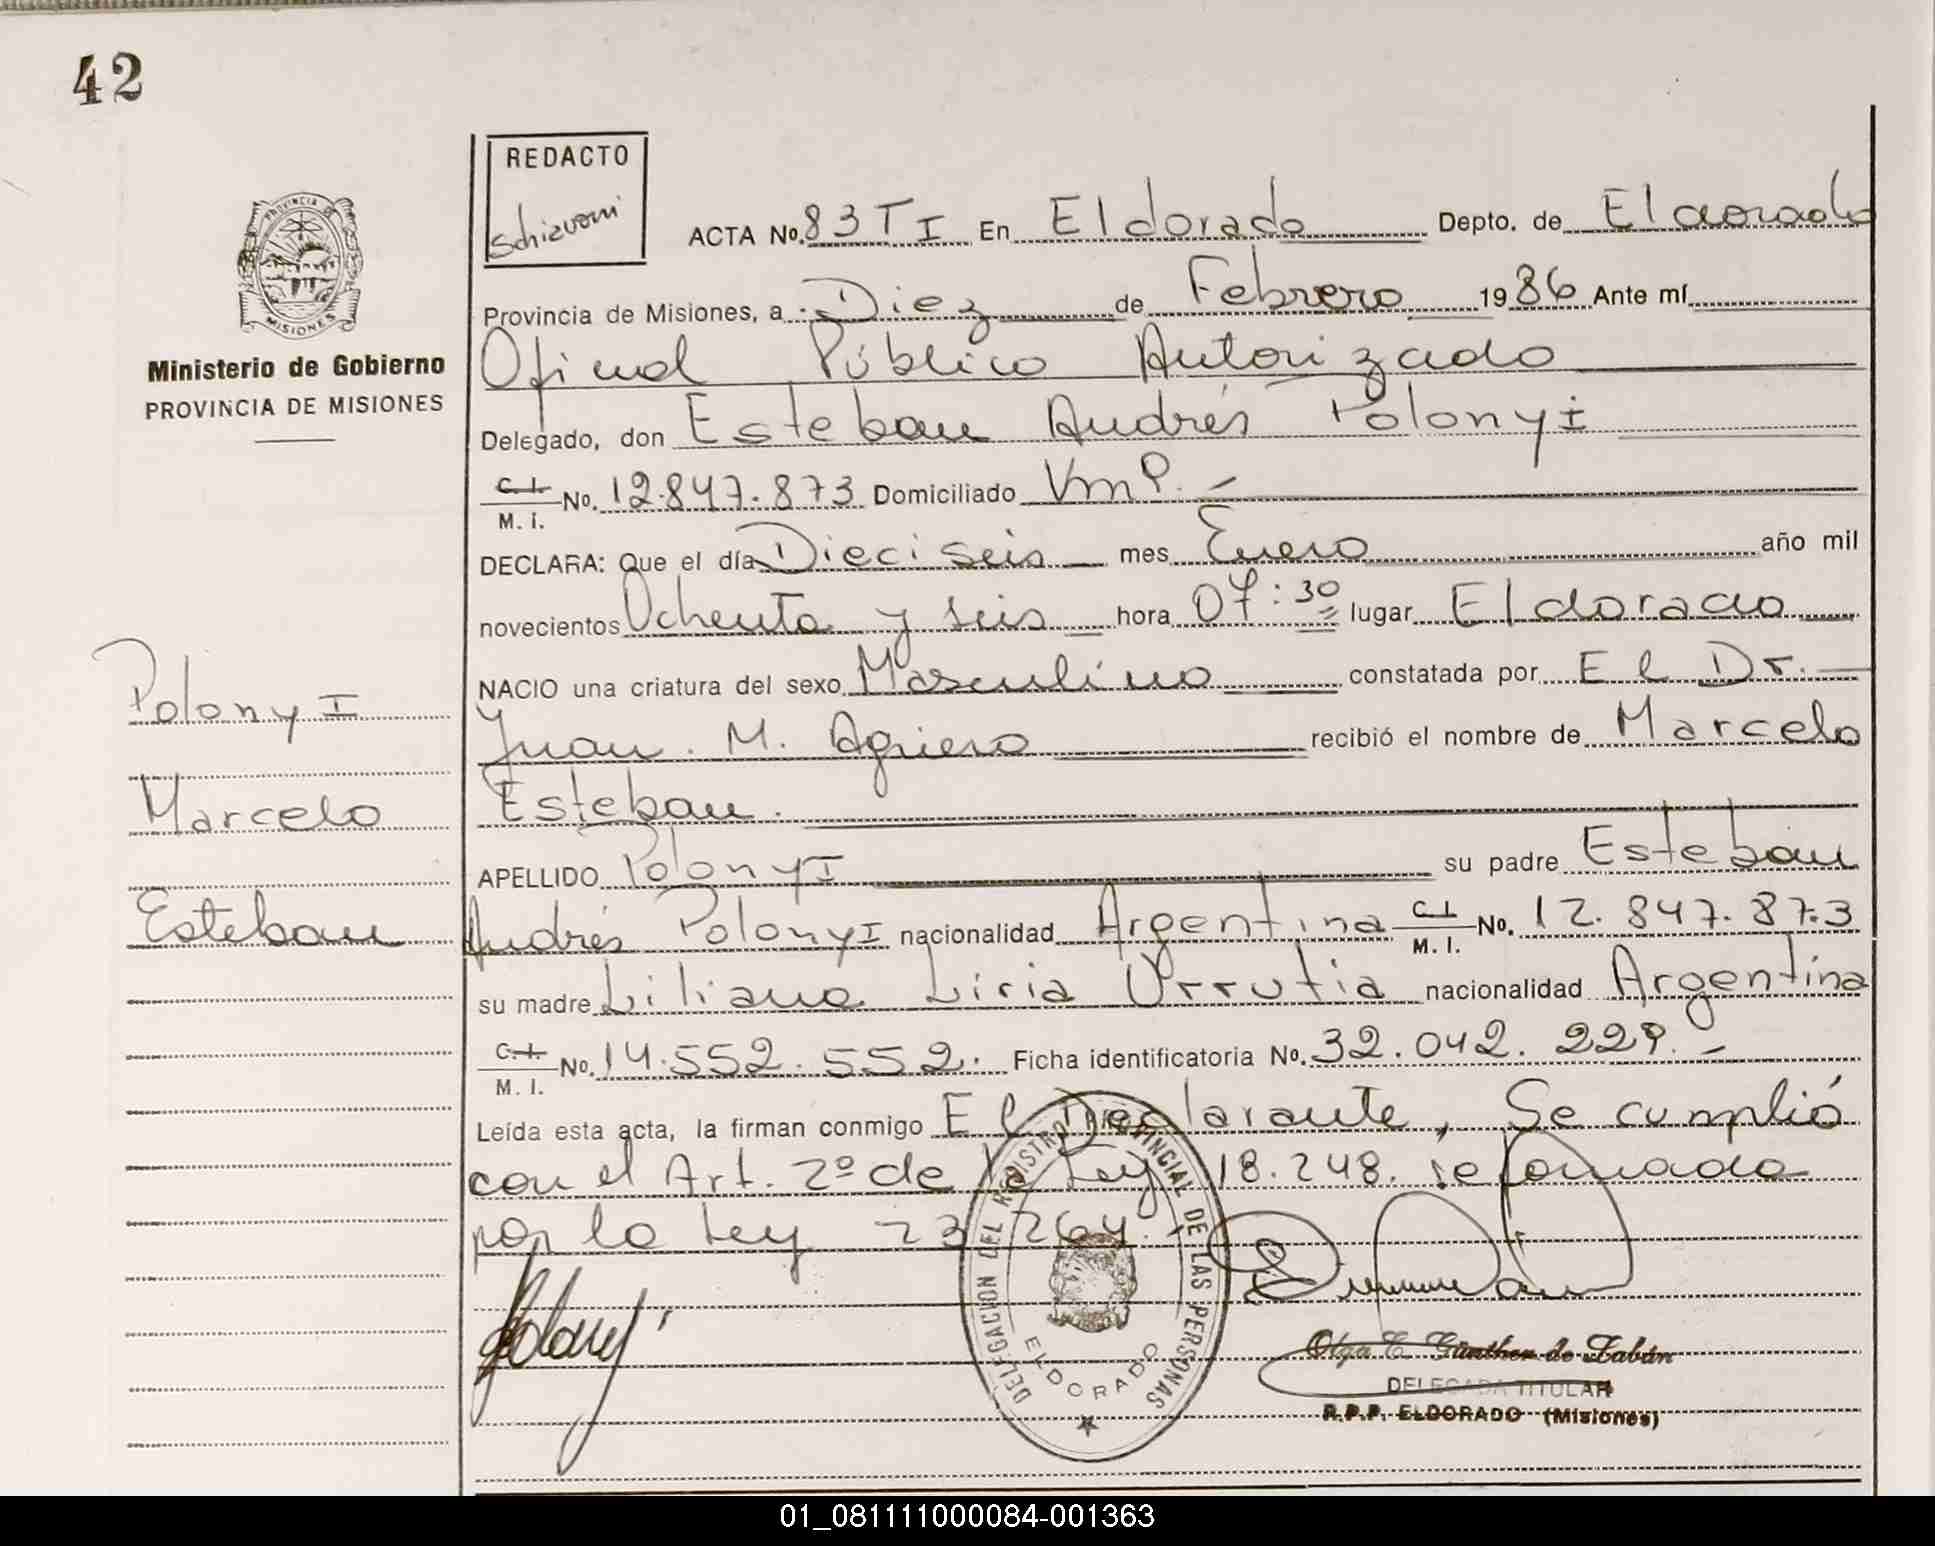 42
REDACTO
Schiavoni
PROVINCIA DE
MISIONES
Ministerio de Gobierno
PROVINCIA DE MISIONES
ACTA No. 83 T I En Eldorado Depto. de Eldorado
Provincia de Misiones, a Diez de Febrero 1986 Ante mí
Oficial Público Autorizado
Delegado, don Esteban Andrés Polonyi
C. I. No. 12.847.873 Domiciliado Vmp. -
M. I.
DECLARA: Que el día Dieciseis mes Enero año mil
novecientos Ochenta y seis hora 07:30 lugar Eldorado
NACIO una criatura del sexo Masculino constatada por El Dr.
Juan. M. Agüero recibió el nombre de Marcelo
Esteban.
APELLIDO PolonyI su padre Esteban
Andrés PolonyI nacionalidad Argentina C. I. No. 12.847.873
M. I.
su madre Liliana Liria Urrutia nacionalidad Argentina
C. I. No. 14.552.552. Ficha identificatoria No. 32.042.229. -
M. I.
Leída esta acta, la firman conmigo El Declarante, Se cumplió
con el Art. 2º de la Ley 18.248. reformada
por la Ley 23 264. -
PolonyI
Marcelo
Esteban
DELEGACION DEL REGISTRO PROVINCIAL DE LAS PERSONAS
ELDORADO
Olga E. Günther de Zabán
DELEGADA TITULAR
R.P.P. ELDORADO (Misiones)
01_081111000084-001363